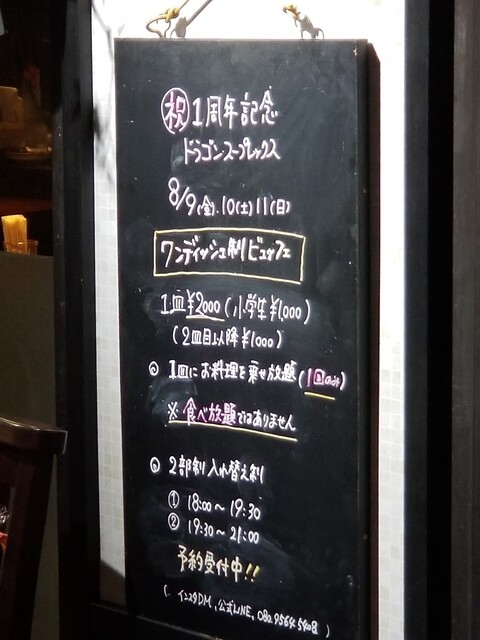 ㊗1周年記念
ドラゴンスープレックス
8/9(金).10(土)11(日)
ワンディッシュ制ビュッフェ
1皿¥2000(小学生¥1,000)
(2皿目以降¥1000)
○ 1皿にお料理を乗せ放題(1回のみ)
※食べ放題ではありません
○ 2部制入れ替え制
① 18:00〜19:30
② 19:30〜21:00
予約受付中!!
( インスタDM,公式LINE,082 9564 5408 )